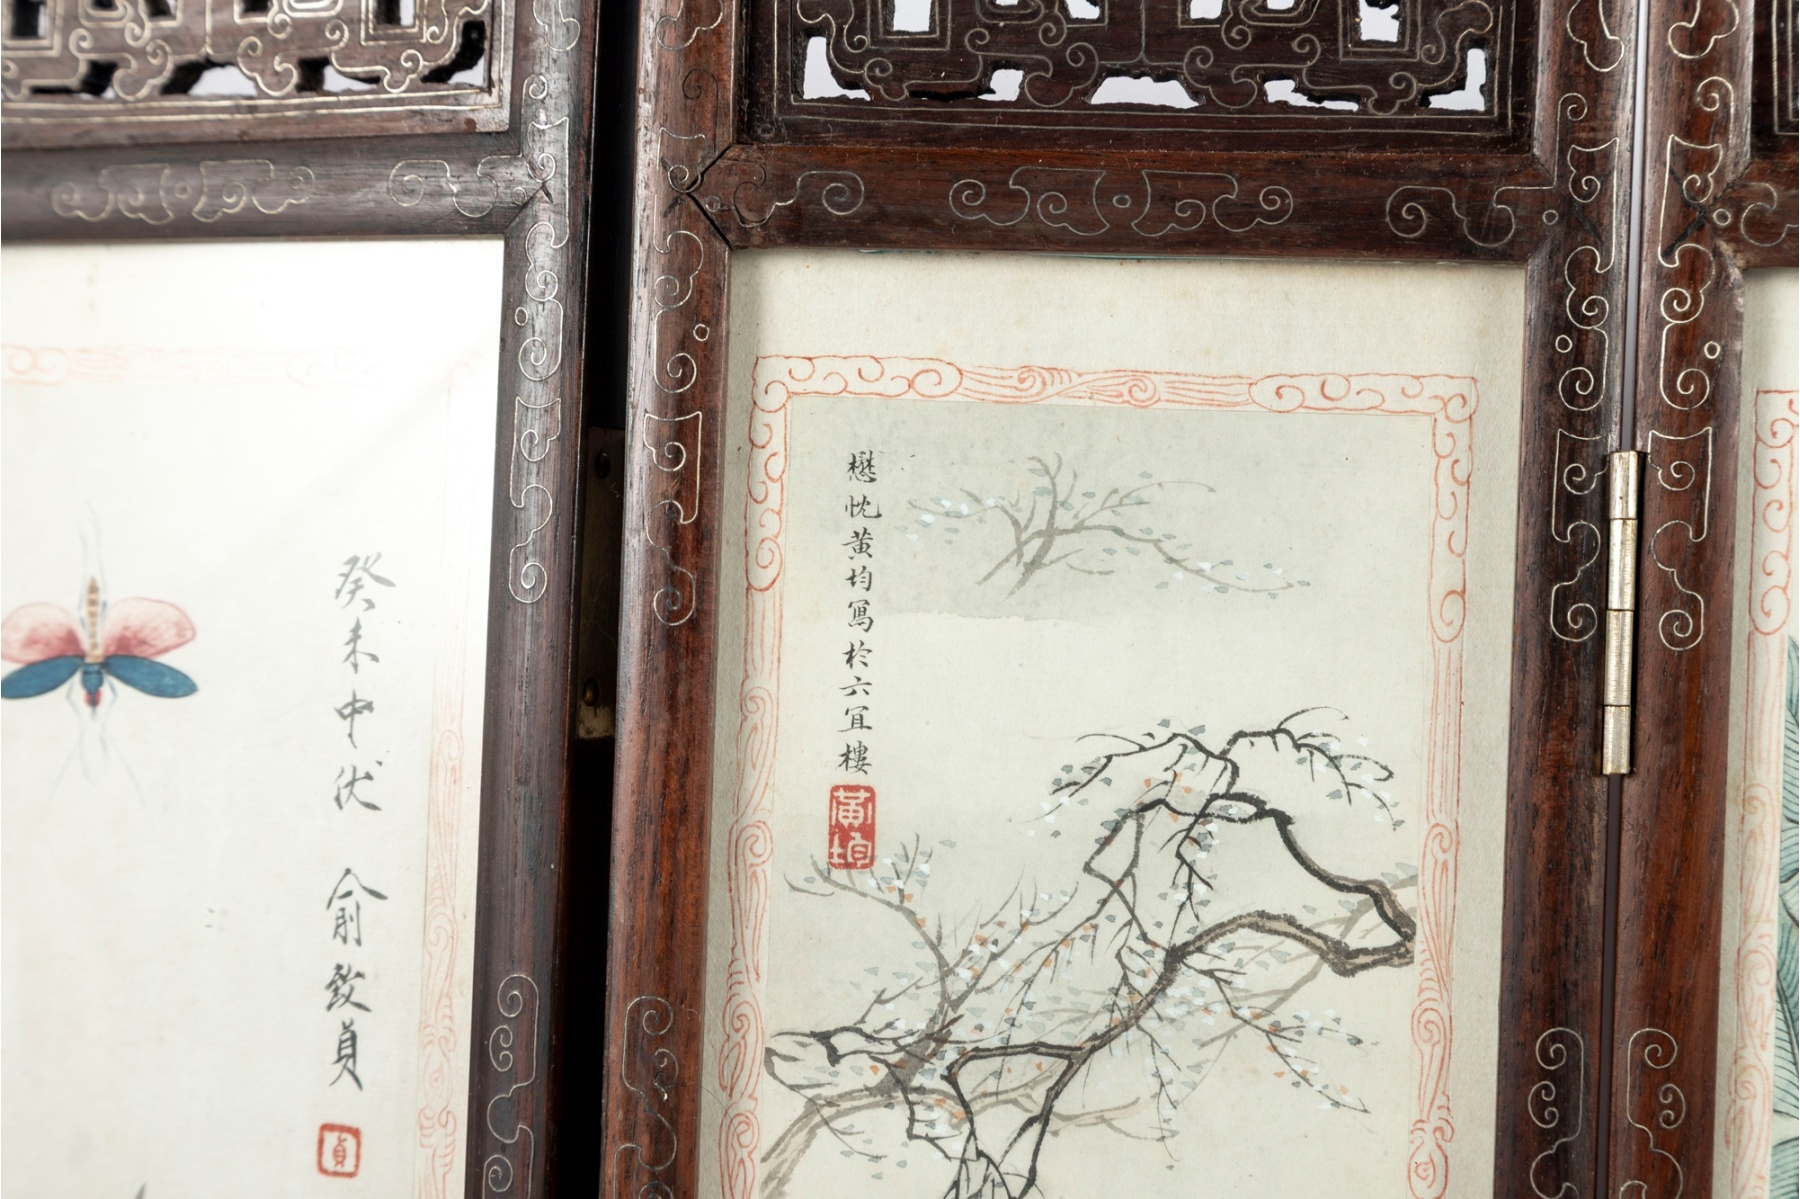 懋忱黄均寫於六宜樓
黃均
癸未中伏 俞致貞
貞